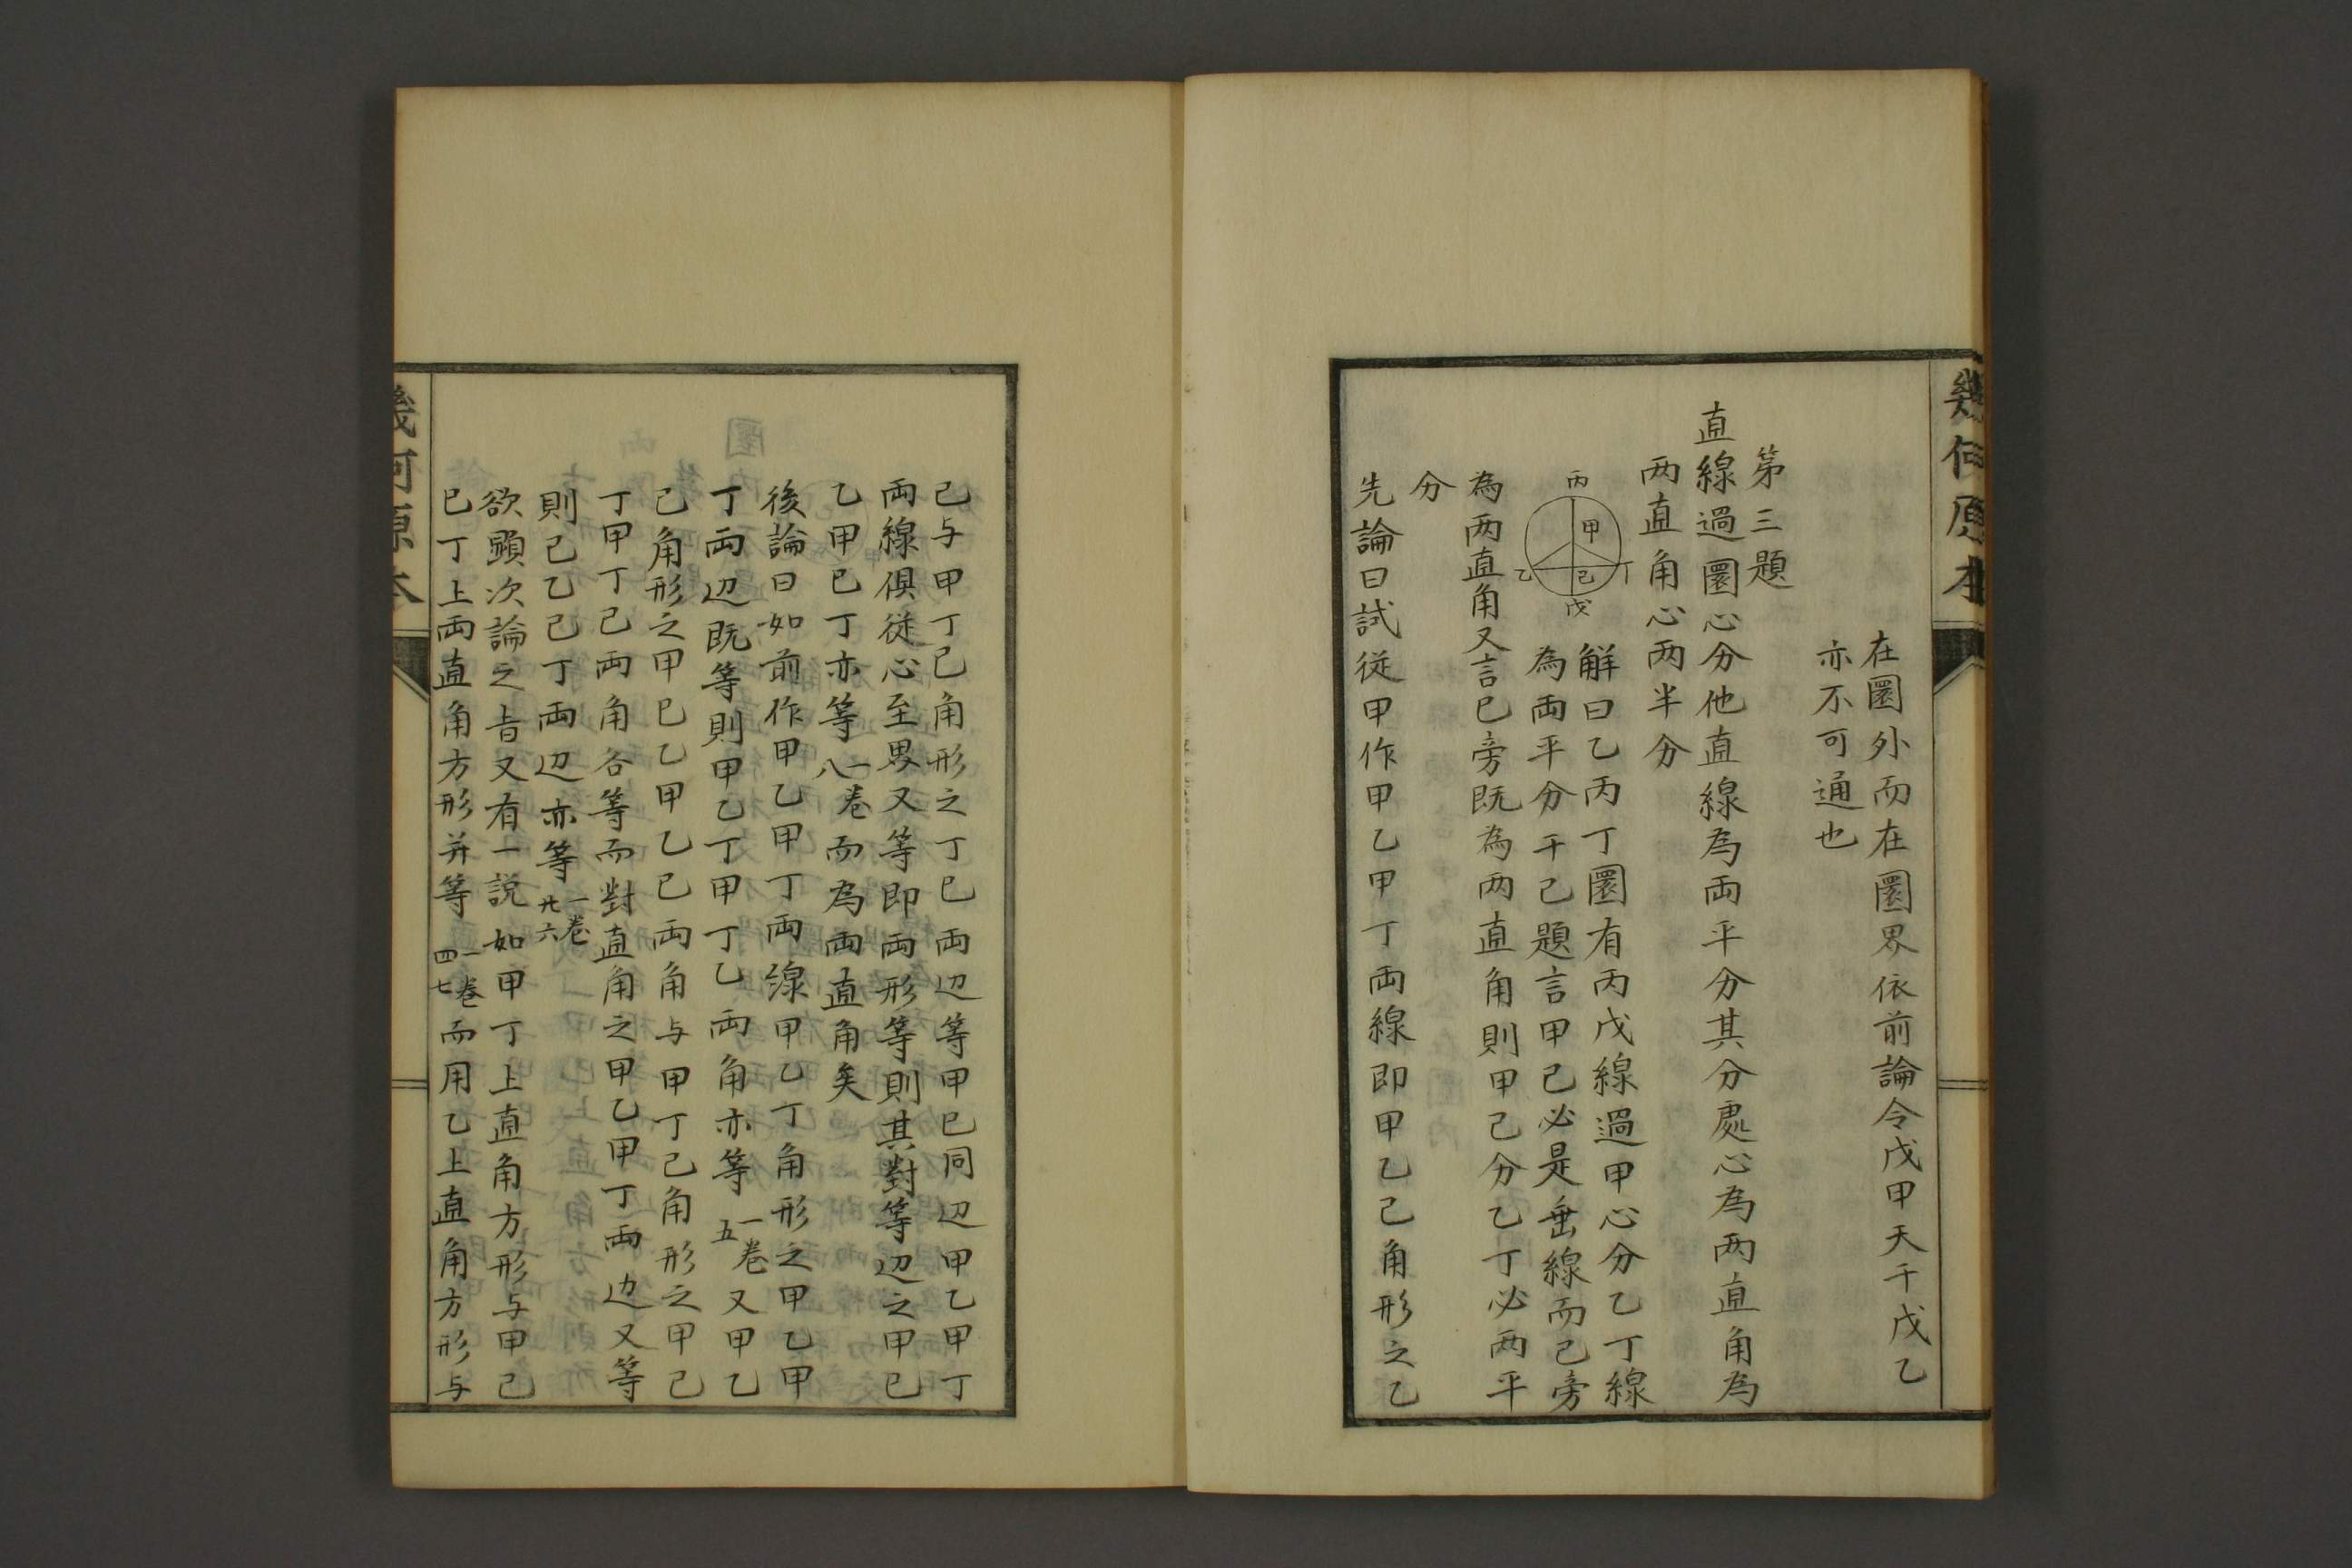 幾何原本
在圜外而在圜界依前論令戊甲天千戊乙
亦不可通也
第三題
直線過圜心分他直線為両平分其分處心為两直角為
两直角心两半分
丙
甲
乙
己
丁
戊
解曰乙丙丁圜有丙戊線過甲心分乙丁線
為両平分于己題言甲己必是垂線而己旁
為两直角又言己旁既為两直角則甲己分乙丁必两平
分
先論曰試従甲作甲乙甲丁両線即甲乙己角形之乙
己与甲丁己角形之丁己両辺等甲己同辺甲乙甲丁
両線俱従心至界又等即両形等則其對等辺之甲己
乙甲己丁亦等一卷八而為両直角矣
後論曰如前作甲乙甲丁両線甲乙丁角形之甲乙甲
丁両辺既等則甲乙丁甲丁乙両角亦等一卷五又甲乙
己角形之甲己乙甲乙己両角与甲丁己角形之甲己
丁甲丁己両角各等而對直角之甲乙甲丁両边又等
則己乙己丁両辺亦等一卷廿六
欲顕次論之旨又有一說如甲丁上直角方形与甲己
己丁上両直角方形并等一卷四七而用乙上直角方形与
幾何原本